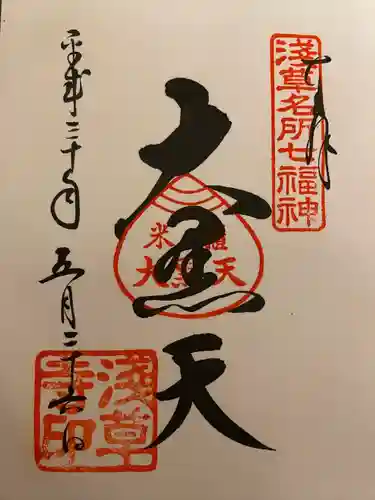 奉拝
浅草名所七福神
大黒天
米櫃
大黒天
平成三十年五月二十六日
浅草寺印